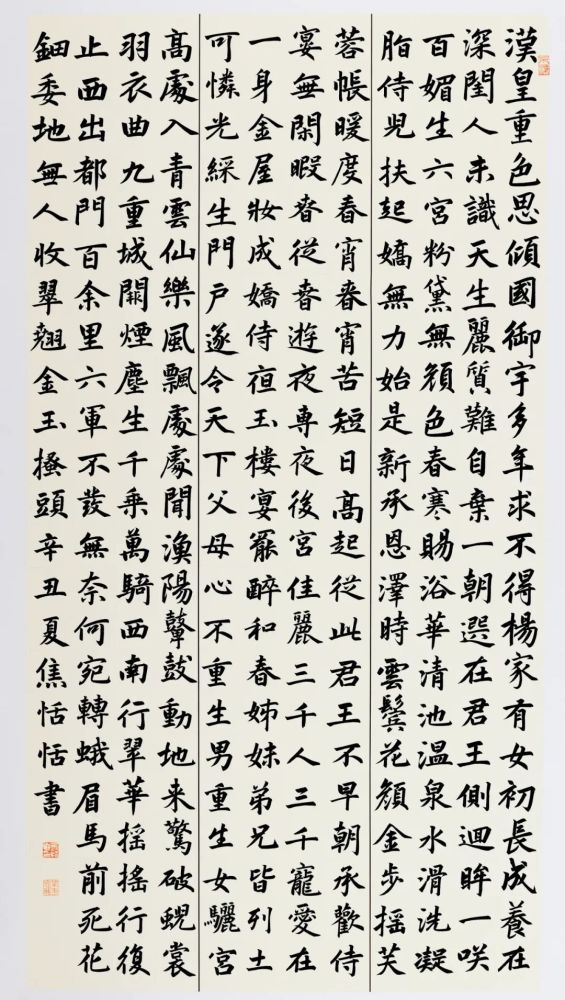 漢皇重色思傾國御宇多年求不得楊家有女初長成養在
深閨人未識天生麗質難自棄一朝選在君王側迴眸一咲
百媚生六宮粉黛無顏色春寒賜浴華清池溫泉水滑洗凝
脂侍児扶起嬌無力始是新承恩澤時雲鬢花顏金步搖芙
蓉帳暖度春宵春宵苦短日高起從此君王不早朝承歡侍
宴無閑暇春從春遊夜專夜後宮佳麗三千人三千寵愛在
一身金屋妝成嬌侍夜玉樓宴罷醉和春姊妹弟兄皆列土
可憐光綵生門戶遂令天下父母心不重生男重生女驪宮
高處入青雲仙樂風飄處處聞漁陽鼙鼓動地来驚破蜺裳
羽衣曲九重城闕煙塵生千乘萬騎西南行翠華搖搖行復
止西出都門百余里六軍不發無奈何宛轉蛾眉馬前死花
鈿委地無人收翠翹金玉搔頭辛丑夏焦恬恬書